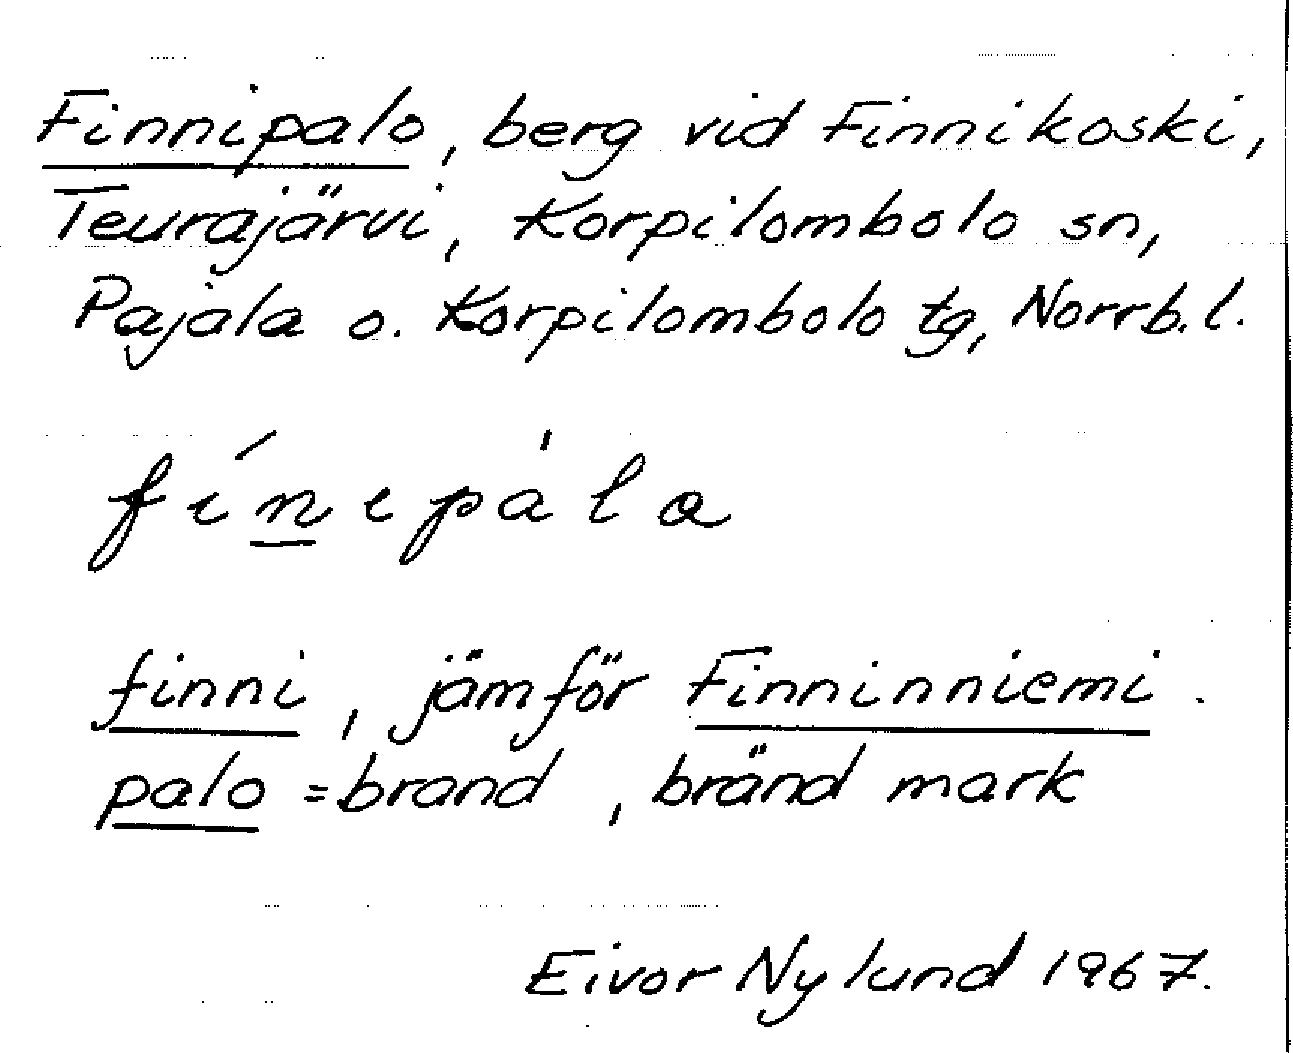 Finnipalo, berg vid Finnikoski,
Teurajärvi, Korpilombolo sn,
Pajala o. Korpilombolo tg, Norrb.l.
fínipàla
finni, jämför Finninniemi.
palo = brand, bränd mark
Eivor Nylund 1967.